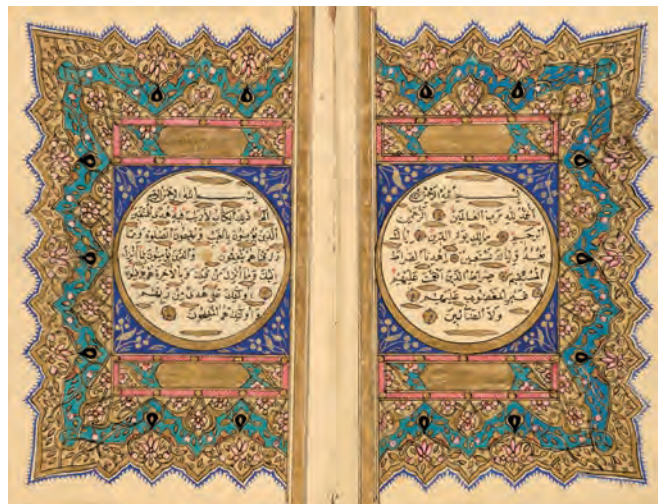 بِسْمِ اللهِ الرَّحْمٰنِ الرَّحِيمِ
اَلْحَمْدُ لِلّٰهِ رَبِّ الْعَالَمِينَ اَلرَّحْمٰنِ
الرَّحِيمِ مَالِكِ يَوْمِ الدِّينِ اِيَّاكَ
نَعْبُدُ وَاِيَّاكَ نَسْتَعِينُ اِهْدِنَا الصِّرَاطَ
الْمُسْتَقِيمَ صِرَاطَ الَّذِينَ اَنْعَمْتَ عَلَيْهِمْ
غَيْرِ الْمَغْضُوبِ عَلَيْهِمْ
وَلَا الضَّالِّينَ
بِسْمِ اللهِ الرَّحْمٰنِ الرَّحِيمِ
الم ذٰلِكَ الْكِتَابُ لَا رَيْبَ فِيهِ هُدًى لِلْمُتَّقِينَ
اَلَّذِينَ يُؤْمِنُونَ بِالْغَيْبِ وَيُقِيمُونَ الصَّلٰوةَ وَمِمَّا
رَزَقْنَاهُمْ يُنْفِقُونَ وَالَّذِينَ يُؤْمِنُونَ بِمَا اُنْزِلَ
اِلَيْكَ وَمَا اُنْزِلَ مِنْ قَبْلِكَ وَبِالْاٰخِرَةِ هُمْ يُوقِنُونَ
اُولٰئِكَ عَلٰى هُدًى مِنْ رَبِّهِمْ
وَاُولٰئِكَ هُمُ الْمُفْلِحُونَ